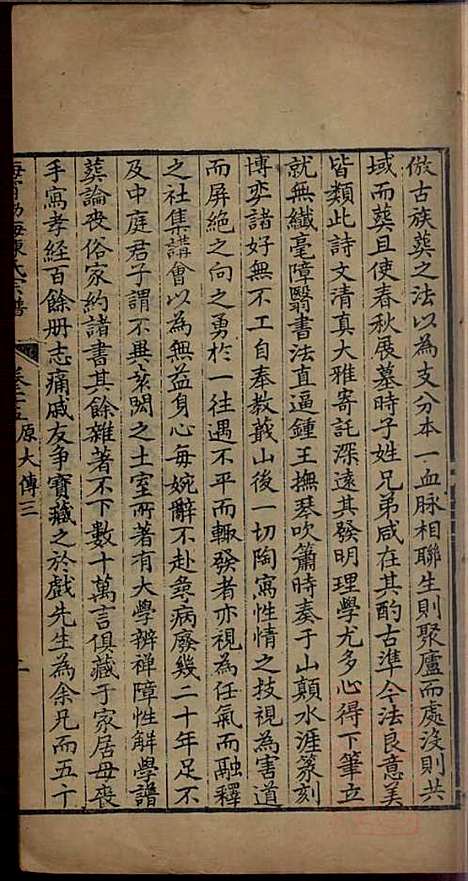 倣古族葬之法以為支分本一血脉相聯生則聚廬而處沒則共
域而葬且使春秋展墓時子姓兄弟咸在其酌古準今法良意美
皆類此詩文清真大雅寄託深遠其發明理學尤多心得下筆立
就無纖毫障翳書法直逼鍾王撫琴吹簫時奏于山顛水涯篆刻
博弈諸好無不工自奉教蕺山後一切陶寫性情之技視為害道
而屏絕之向之勇於一往遇不平而輒發者亦視為任氣而融釋
之社集講會以為無益身心每婉辭不赴尋病廢幾二十年足不
及中庭君子謂不異袁閎之土室所著有大學辨禪障性解學譜
葬論喪俗家約諸書其餘雜著不下數十萬言俱藏于家居母喪
手寫孝經百餘册志痛戚友爭寶藏之於戲先生為余兄而五十
海寧渤海陳氏宗譜
卷二五原大傳三